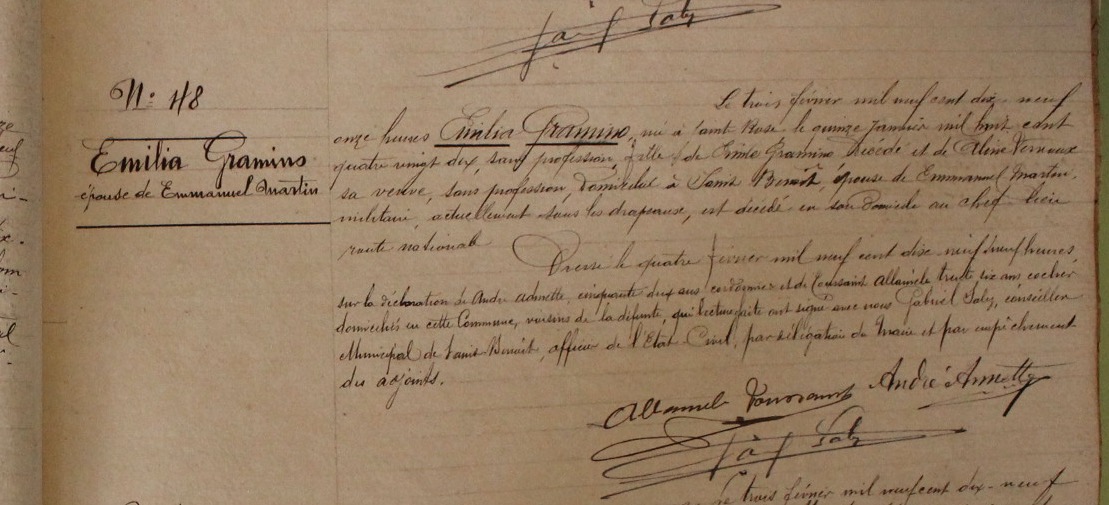 Saly
N° 48
Emilia Gramino
épouse de Emmanuel Martin
Le trois février mil neuf cent dix-neuf
onze heures Emilia Gramino, né à Saint Rose le quinze janvier mil huit cent
quatre vingt dix, sans profession, fille de Emile Gramino décédé et de Aline
sa veuve, sans profession, domiciliés à Saint Benoit, épouse de Emmanuel Martin,
militaire, actuellement sous les drapeaux, est décédé en son domicile au chef lieu
route national
Dressé le quatre février mil neuf cent dix neuf, neuf heures,
sur la déclaration de André cinquante deux ans, cordonnier et de Toussaint Allamèle trente six ans cocher
domiciliés en cette Commune, voisins de la défunte, qui lecture faite ont signé avec nous Gabriel Saly, conseiller
Municipal de Saint-Benoit, officier de l'Etat-Civil, par délégation du Maire et par empêchement
des adjoints.
Allamèle Toussaint André
Saly
Le trois février mil neuf cent dix-neuf